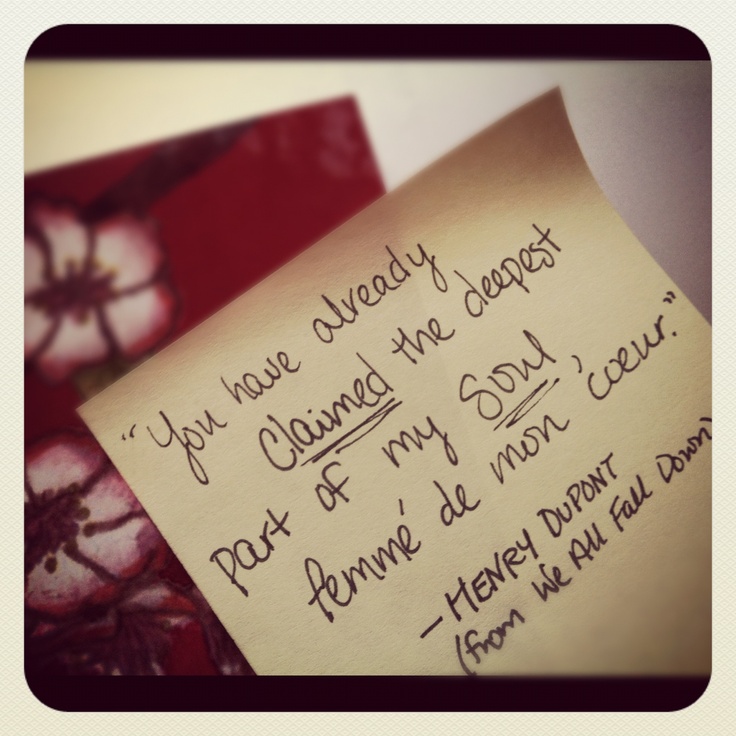 "You have already
Claimed the deepest
part of my Soul,
femmé de mon 'coeur."
- HENRY DUPONT
(from We All Fall Down)